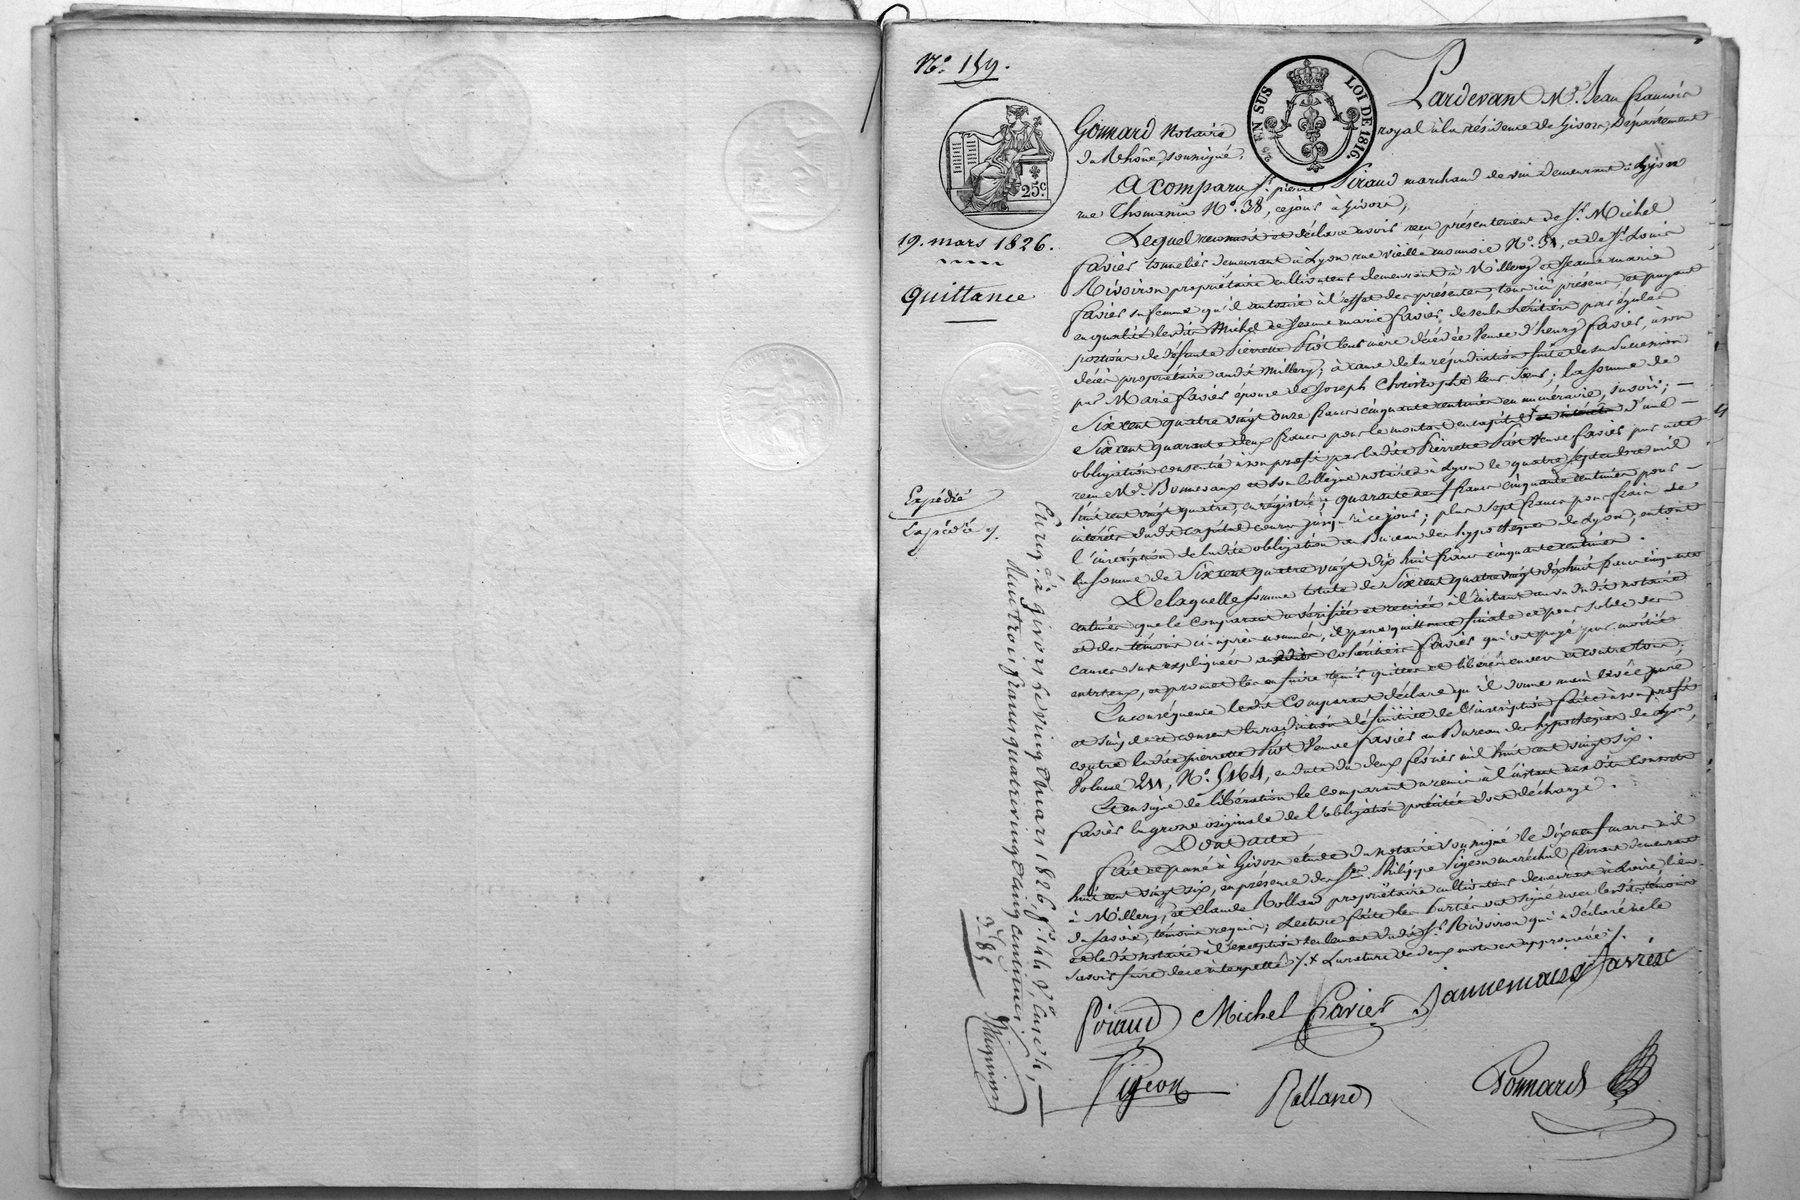 N.° 159.
EN SUS
LOI DE 1816.
25.c
19. mars 1826.
Quittance
Expédié
Expédié
Pardevant M.e Jean françois
Gonnard Notaire royal à la résidence de Givors, Département
du Rhône, soussigné;
A comparu S.r pierre Piraud marchand de vin demeurant à Lyon
rue Thomassin N.° 38, ce jour à Givors;
Lequel reconnoit et déclare avoir reçu présentement de S.r Michel
favier tonnelier demeurant à Lyon rue vieille monnoie N.° 31, et de S.r Louis
Rivoiron propriétaire cultivateur demeurant à Millery et Jeanne marie
favier sa femme qu'il autorise à l'effet des présentes, tous ici présents, et payant
en qualité lesdits Michel et Jeanne marie favier, de seuls héritiers par égales
portions de défunte Pierrette Piot leur mère décédée Veuve d'henry favier, à son
décès propriétaire audit Millery; à cause de la répudiation faite de sa succession
par Marie favier épouse de Joseph Christophe leur Sœur; la somme de
Six cent quatre vingt onze francs cinquante centimes en numéraire, savoir; —
Six cent quarante deux francs pour le montant en capital et intérêts d'une —
obligation consentie à son profit par ladite Pierrette Piot Veuve favier par acte
reçu M.e Bonnevaux et son Collègue notaires à Lyon le quatre septembre mil
huit cent vingt quatre, enregistré; quarante neuf francs cinquante centimes pour —
intérêts dudit capital courus jusqu'à ce jour; plus sept francs pour frais de
l'inscription de ladite obligation au Bureau des hypothèques de Lyon, en tout
la somme de Six cent quatre vingt dix huit francs cinquante centimes.
De laquelle somme totale de Six cent quatre vingt dix huit francs cinquante
centimes que le comparant a vérifiée et retirée à l'instant au vu dudit notaire
et des témoins ci-après nommés, il passe quittance finale et pour solde des
causes sus expliquées auxdits cohéritiers favier qui ont payé par moitié
entr'eux, et promet les en faire tenir quittes et libérés envers et contre tous;
En conséquence ledit Comparant déclare qu'il donne main levée pure
et simple et consent la radiation définitive de l'inscription faite à son profit
contre ladite pierrette Piot Veuve favier au Bureau des hypothèques de Lyon,
Volume 211, N.° 5164, en date du deux février mil huit cent vingt six.
Et en signe de libération le comparant a remis à l'instant auxdits consorts
favier la grosse originale de l'obligation précitée dont décharge.
Dont acte
fait et passé à Givors étude du notaire soussigné le dix neuf mars mil
huit cent vingt six, en présence des S.rs Philippe Pigeon maréchal ferrant demeurant
à Millery, et Claude Rolland propriétaire cultivateur demeurant à Loire, lieu
de témoins requis; Lecture faite les Parties ont signé avec lesdits témoins
et ledit notaire à l'exception seulement dudit S.r Rivoiron qui a déclaré ne le
savoir faire de ce interpellé ./. + La rature de deux mots est approuvée ./.
Piraud Michel Favier Jannemarie favier
Pigeon Rolland Gonnard
Enreg.é à Givors le vingt mars 1826, f.° 144 V.°
Reçu trois francs quatre vingt cinq centimes
3f 85